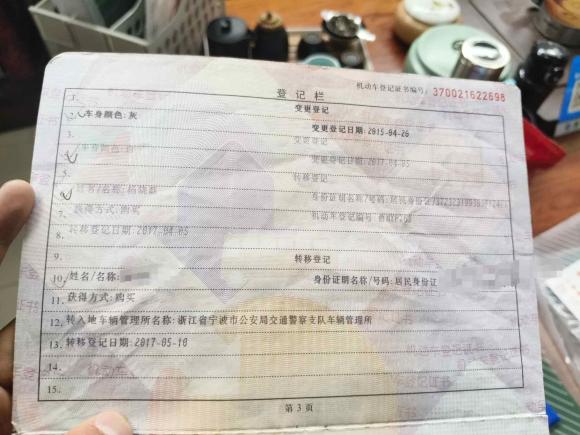 机动车登记证书编号: 370021622698
登记栏
1. 变更登记
2. 车身颜色: 灰 变更登记日期: 2015-04-20
3. 变更登记
车身颜色:
5. 转移登记
姓名/名称: 身份证明名称/号码: 居民身份证
7. 获得方式: 购买 机动车登记编号
8. 转移登记日期: 2017-04-05
9. 转移登记
10. 姓名/名称: 身份证明名称/号码: 居民身份证
11. 获得方式: 购买
12. 转入地车辆管理所名称: 浙江省宁波市公安局交通警察支队车辆管理所
13. 转移登记日期: 2017-05-10
14.
15.
第 3 页